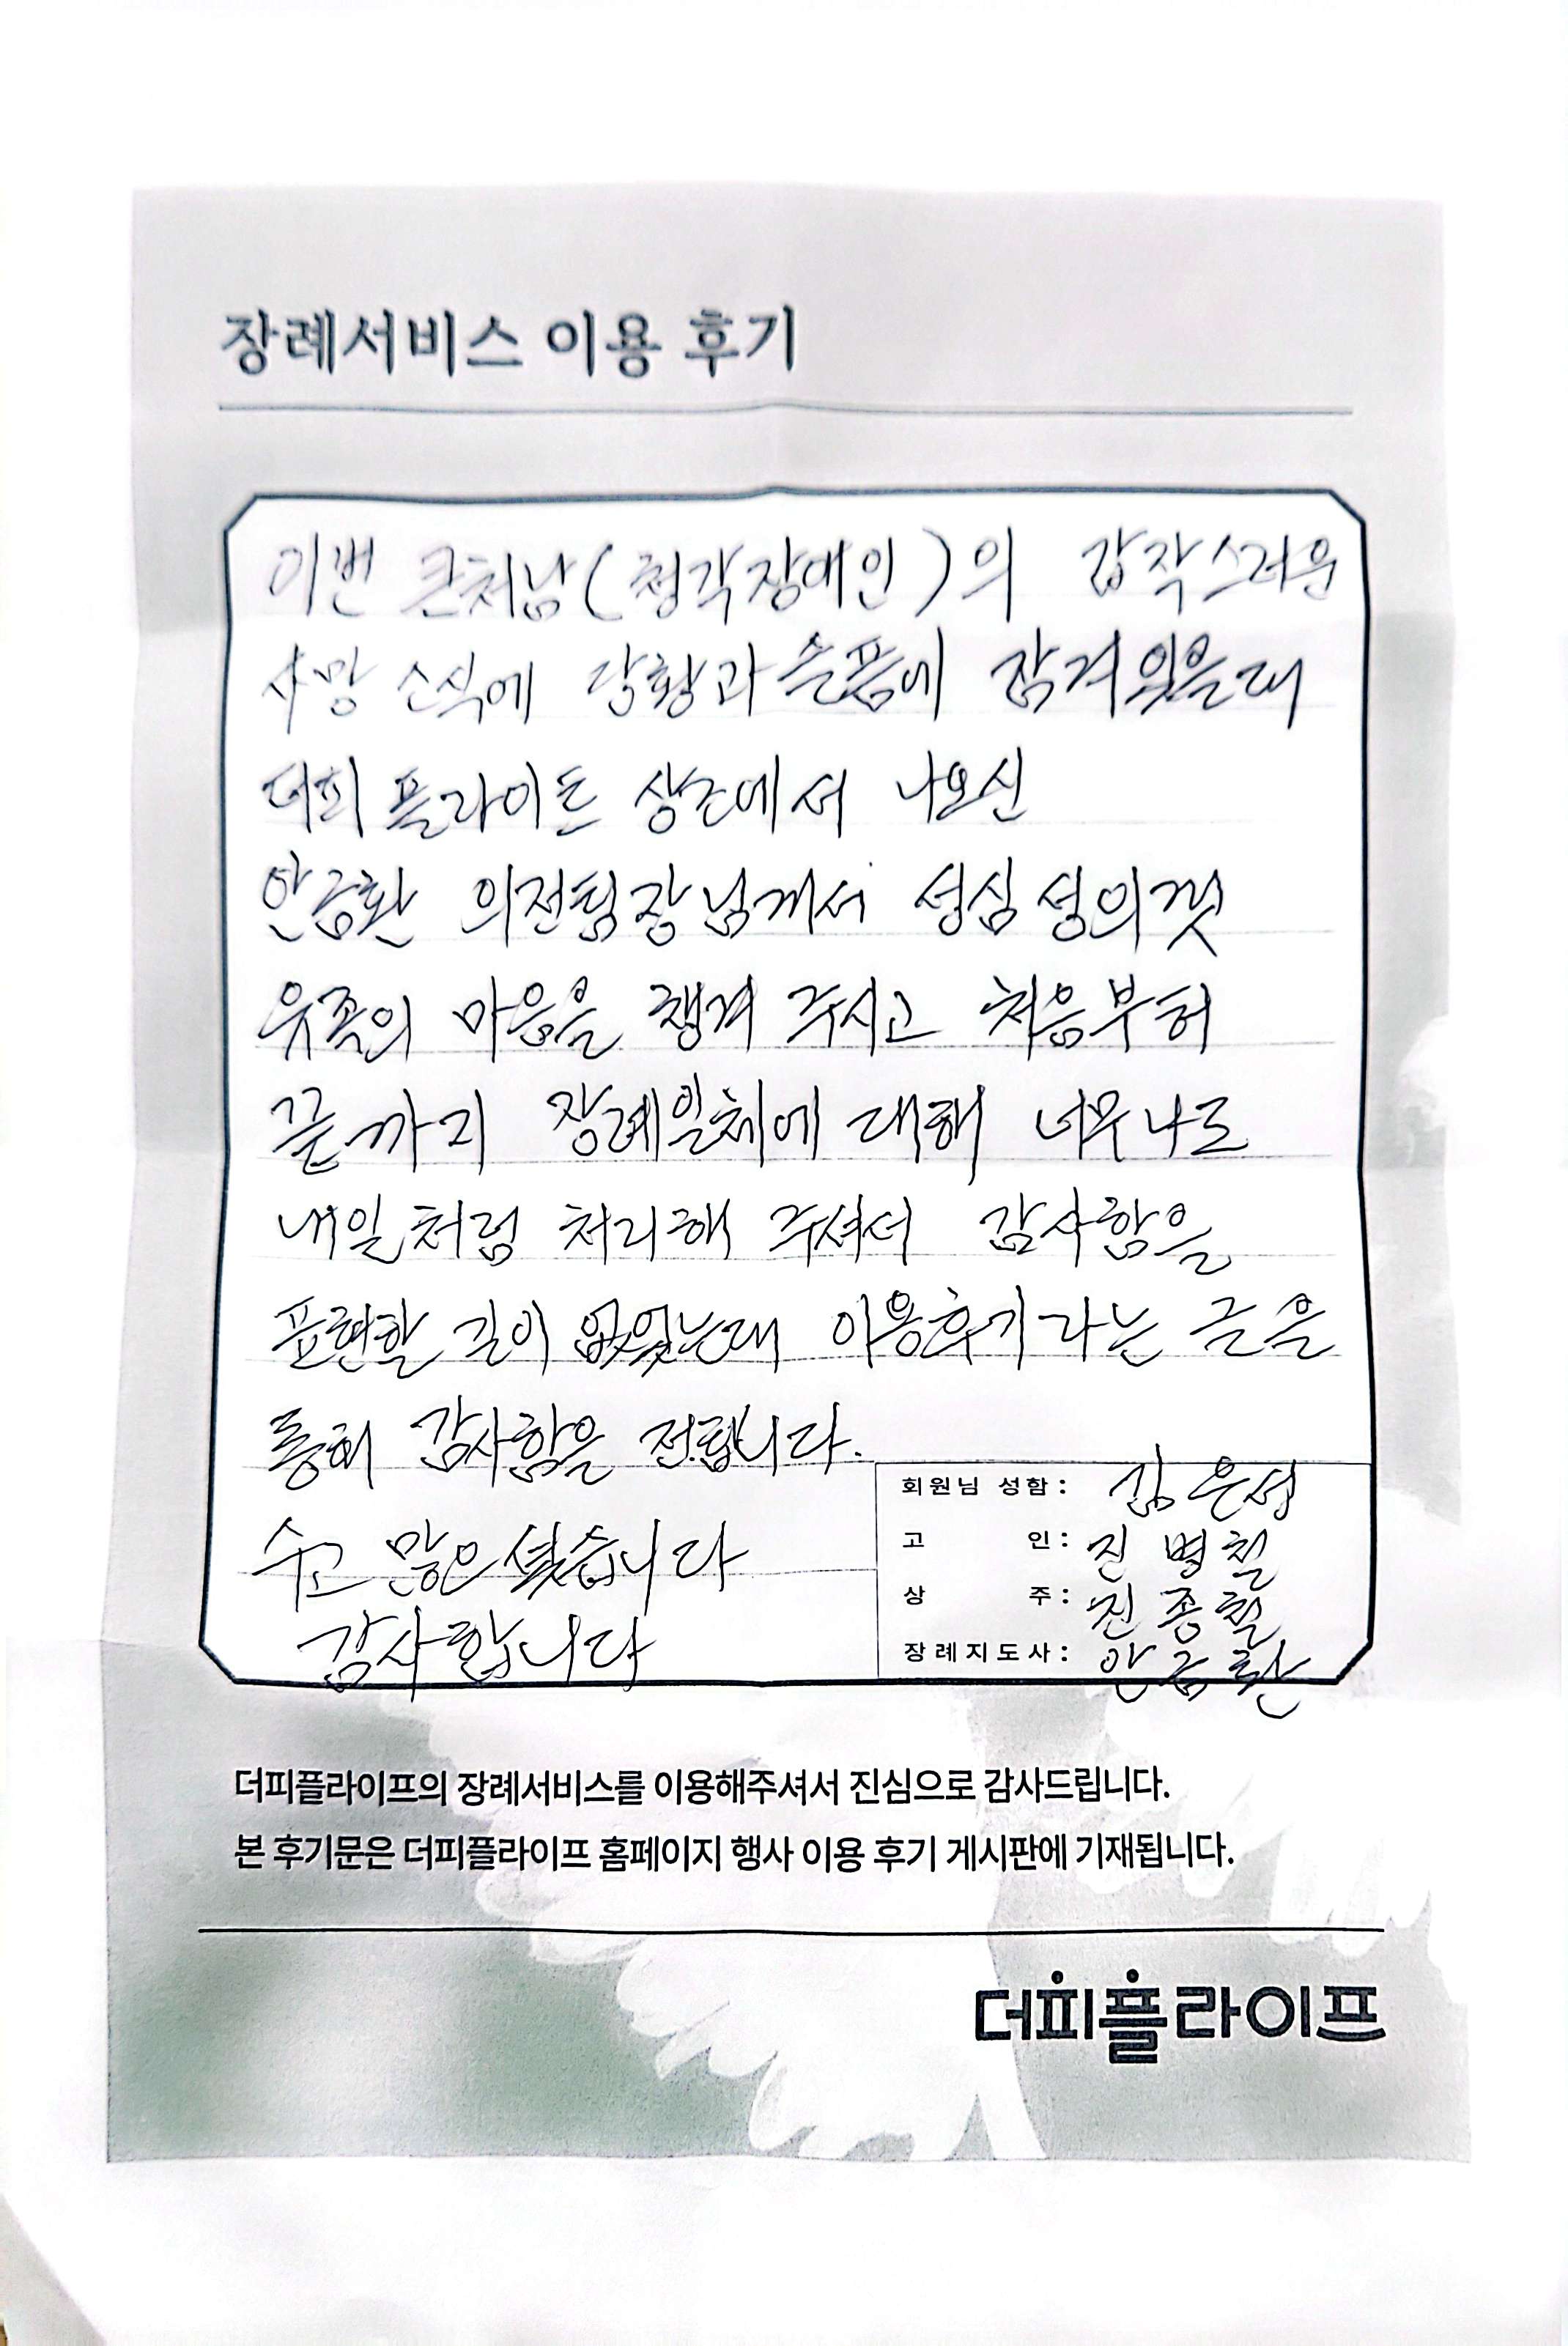 장례서비스 이용 후기
이번 큰처남(청각장애인)의 갑작스러운
사망 소식에 당황과 슬픔에 잠겨있을때
더피플라이프 상조에서 나오신
안금환 의전팀장님께서 성심성의껏
유족의 마음을 챙겨 주시고 처음부터
끝까지 장례일체에 대해 너무나도
내일처럼 처리해 주셔서 감사함을
표현할 길이 없었는데 이용후기라는 글을
통해 감사함을 전합니다.
수고 많으셨습니다
감사합니다
회원님 성함: 김은성
고 인: 진병칠
상 주: 진종칠
장례지도사: 안금환
더피플라이프의 장례서비스를 이용해주셔서 진심으로 감사드립니다.
본 후기문은 더피플라이프 홈페이지 행사 이용 후기 게시판에 기재됩니다.
더피플라이프